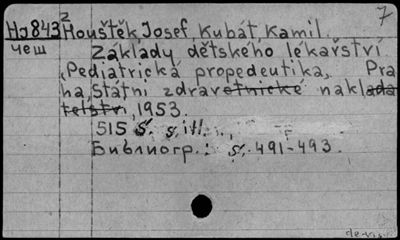 7
Нз843 2 Houštěk, Josef, Kubát, Kamil.
чеш Základy dětského lékařství
„Pediatrická propedeutika„. Pra
ha, Státní zdravotnické naklada
telství, 1953.
515 s. s. ill.
Библиогр.: s. 491-493.